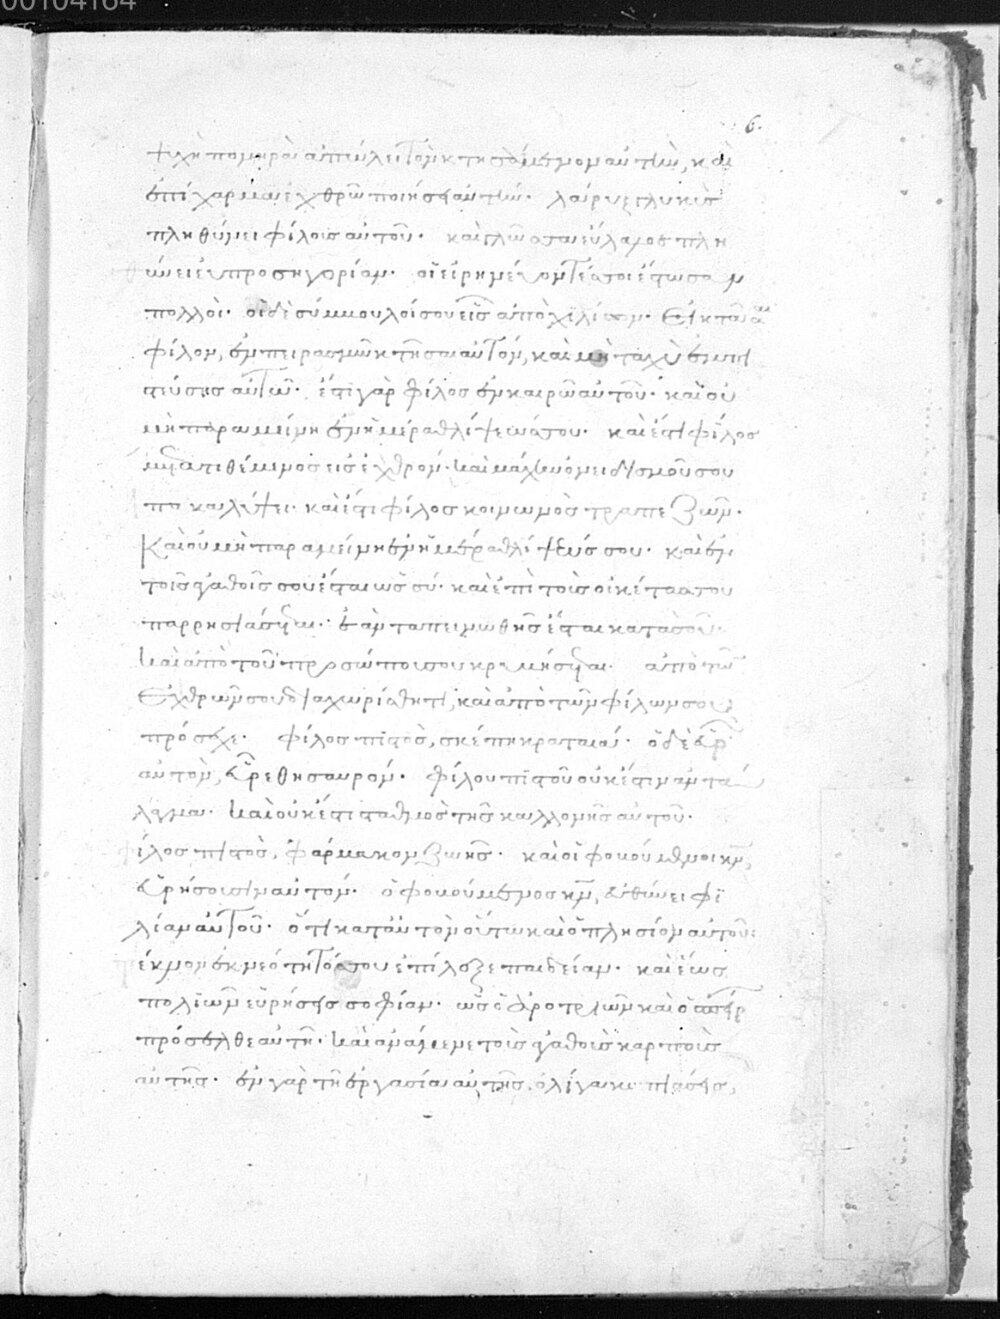 00104164
6.
ψυχὴ πονηρὰ ἀπολεῖ τὸν κτησάμενον αὐτήν, καὶ
ἐπίχαρμα ἐχθρῶν ποιήσει αὐτόν. λάρυγξ γλυκὺς
πληθύνει φίλους αὐτοῦ. καὶ γλῶσσα εὔλαλος πλη
θύνει εὐπροσήγορα. οἱ εἰρηνεύοντές σοι ἔστωσαν
πολλοί. οἱ δὲ σύμβουλοί σου εἷς ἀπὸ χιλίων. εἰ κτᾶσαι
φίλον, ἐν πειρασμῶ κτῆσαι αὐτόν, καὶ μὴ ταχὺ ἐμπι
στεύσης αὐτῶ. ἔστι γὰρ φίλος ἐν καιρῶ αὐτοῦ. καὶ οὐ
μὴ παραμείνη ἐν ἡμέρα θλίψεώς σου. καὶ ἔστι φίλος
μετατιθέμενος εἰς ἔχθραν. καὶ μάχην ὀνειδισμοῦ σου
ἀποκαλύψει. καὶ ἔστι φίλος κοινωνὸς τραπεζῶν.
Καὶ οὐ μὴ παραμείνη ἐν ἡμέρα θλίψεώς σου. καὶ ἐν
τοῖς ἀγαθοῖς σου ἔσται ὡς σύ. καὶ ἐπὶ τοὺς οἰκέτας σου
παρρησιάσεται. ἐὰν ταπεινωθῆς ἔσται κατὰ σοῦ.
καὶ ἀπὸ τοῦ προσώπου σου κρυβήσεται. ἀπὸ τῶν
ἐχθρῶν σου διαχωρίσθητι, καὶ ἀπὸ τῶν φίλων σου
πρόσεχε. φίλος πιστός, σκέπη κραταιά. ὁ δὲ εὑρὼν
αὐτόν, εὗρε θησαυρόν. φίλου πιστοῦ οὐκ ἔστιν ἀντάλ
λαγμα. καὶ οὐκ ἔστι σταθμὸς τῆς καλλονῆς αὐτοῦ.
φίλος πιστός, φάρμακον ζωῆς. καὶ οἱ φοβούμενοι κν,
εὑρήσουσιν αὐτόν. ὁ φοβούμενος κν, εὐθύνει φι
λίαν αὐτοῦ. ὅτι κατ' αὐτὸν οὕτω καὶ ὁ πλησίον αὐτοῦ.
τέκνον ἐκ νεότητός σου ἐπίλεξε παιδείαν. καὶ ἕως
πολιῶν εὑρήσεις σοφίαν. ὡς ὁ ἀροτριῶν καὶ ὁ σπείρων
πρόσελθε αὐτῆ. καὶ ἀνάμενε τοὺς ἀγαθοὺς καρποὺς
αὐτῆς. ἐν γὰρ τῆ ἐργασία αὐτῆς ὀλίγον κοπιάσεις,